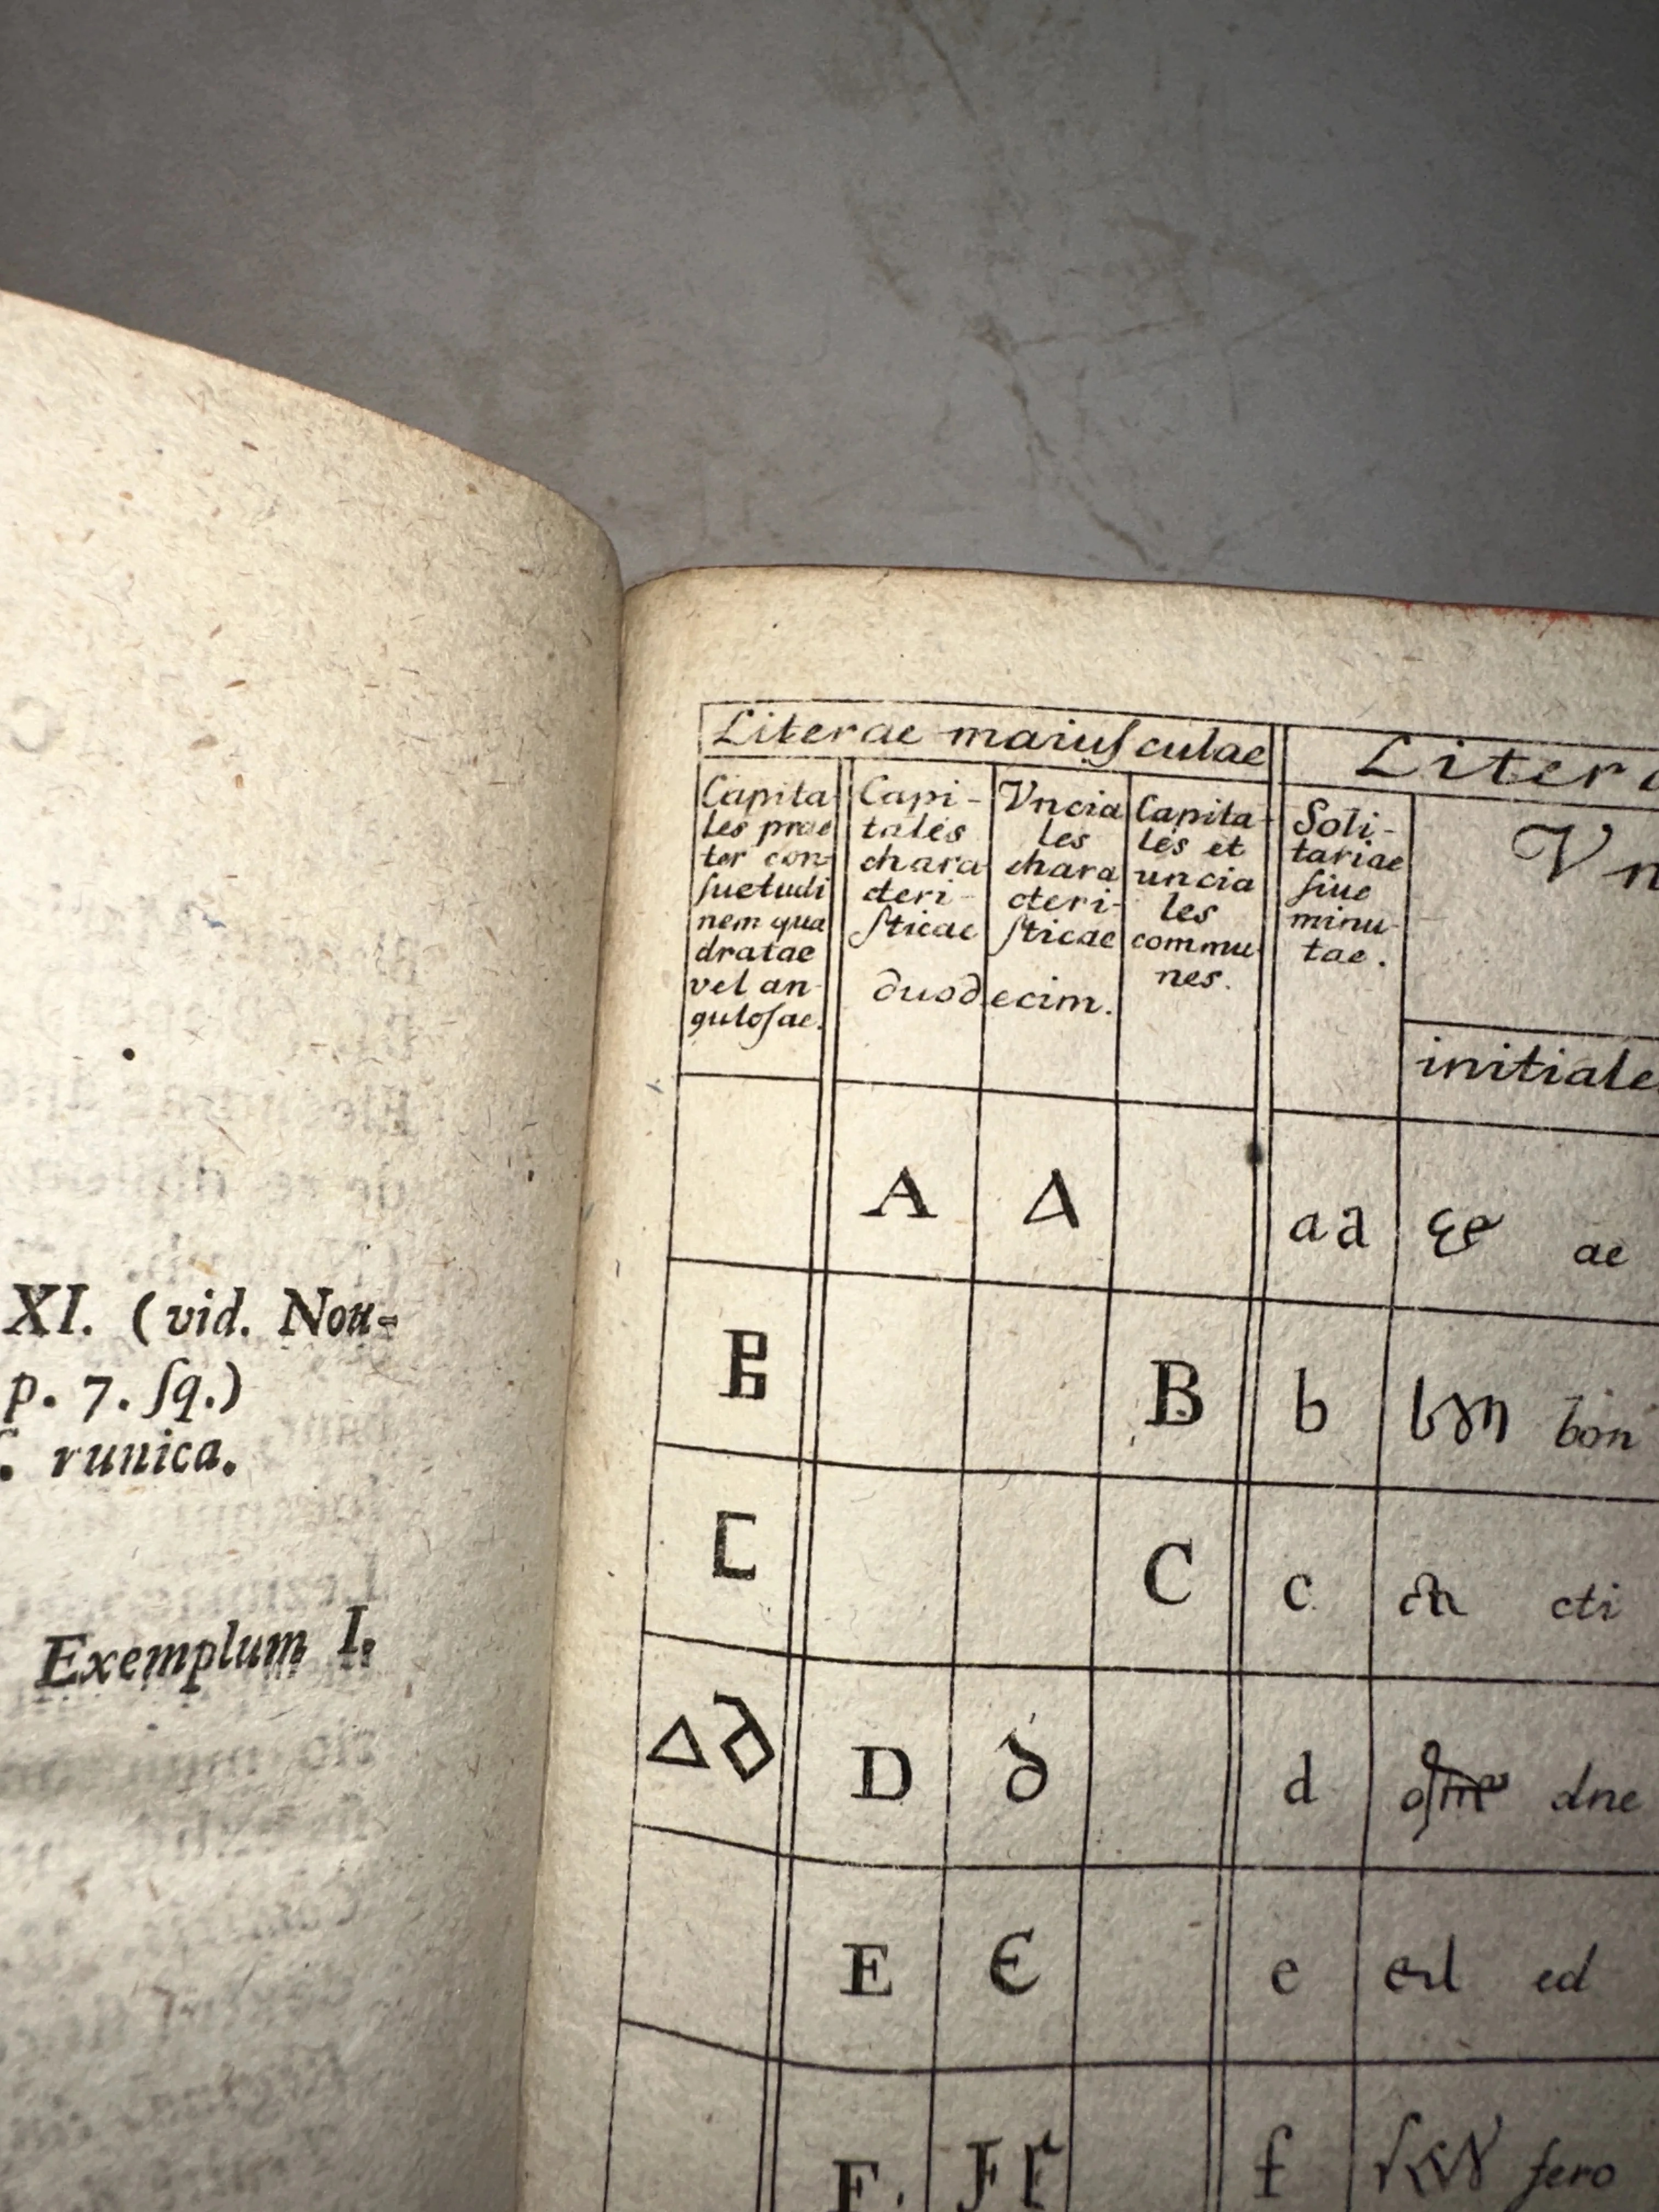 XI. (vid. Nou-
p. 7. ſq.)
. runica.
Exemplum I.
Literae maiuſculae
Capita-
les prae
ter con-
ſuetudi
nem qua
dratae
vel an-
guloſae.
Capi-
tales
chara
cteri-
ſticae
Vncia
les
chara
cteri-
ſticae
duodecim.
Capita-
les et
uncia
les
commu-
nes.
Soli-
tariae
ſiue
minu-
tae.
initiale
A Δ a a ae
B B b bon
C C c cti
Δ D d dne
E Є e ed
F. f fero